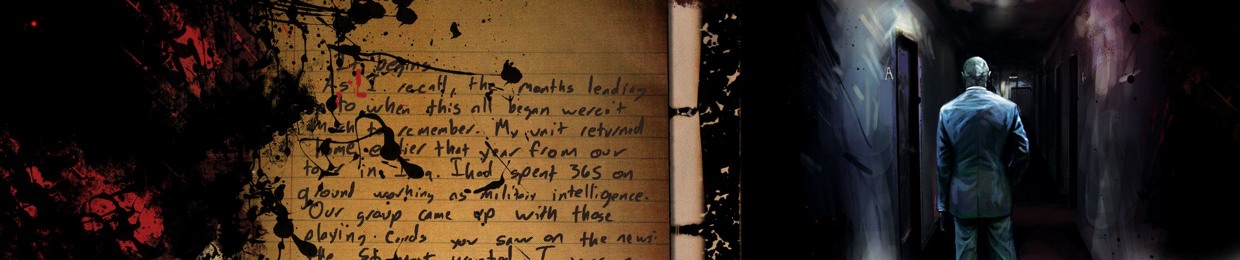 begins
As I recall, the months leading
to when this all began weren't
much to remember. My unit returned
home earlier that year from our
tour in Iraq. I had spent 365 on
ground working as military intelligence.
Our group came up with those
playing cards you saw on the news.
the I
A